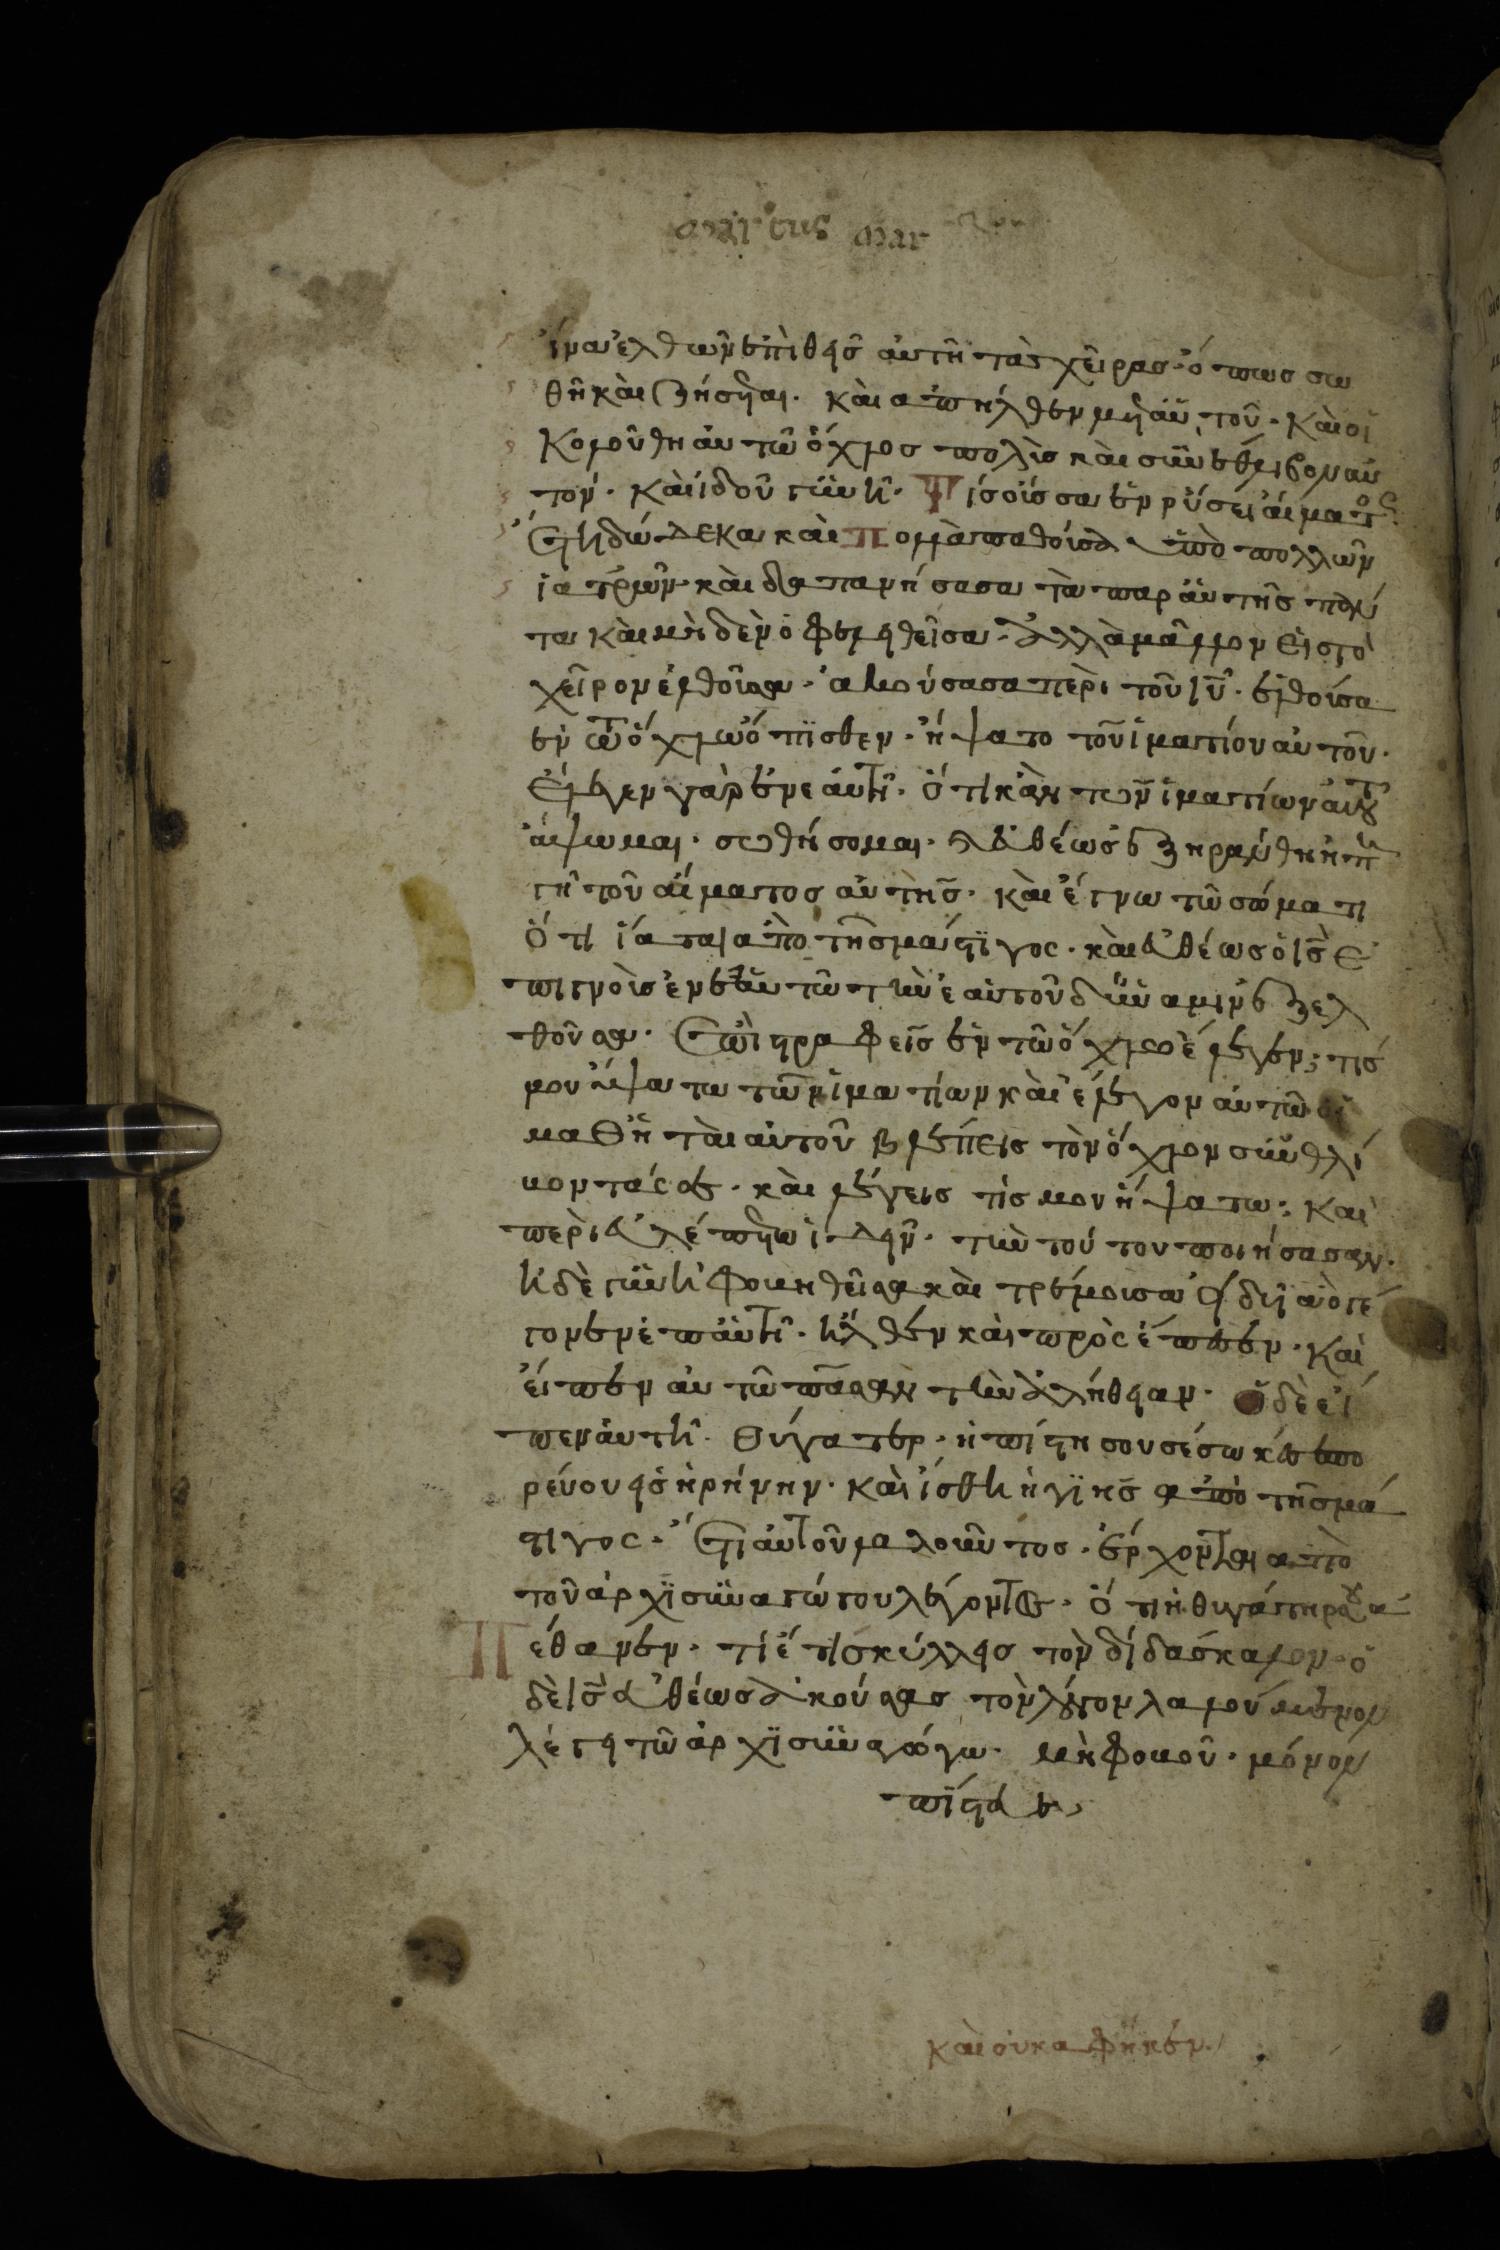 ἵνα ἐλθὼν ἐπιθῆς αὐτῆ τὰς χεῖρας· ὅπως σω
θῆ καὶ ζήσηται· καὶ ἀπῆλθεν μετ' αὐτοῦ· καὶ οἱ
κολούθη αὐτῶ ὄχλος πολὶς καὶ συνέθλιβον αὐ
τόν· καὶ ἰδοῦ γυνὴ· τίς οὖσα ἐν ρύσει αἵματος
ἔτη δώδεκα καὶ πολλὰ παθοῖσα ὑπὸ πολλῶν
ἰατρῶν· καὶ δαπανήσασα τὰ παρ' αὐτῆς πάν
τα καὶ μὴδὲν ὀφεληθεῖσα· ἀλλὰ μᾶλλον εἰς τὸ
χεῖρον ἐλθοῖσα· ἀκούσασα περὶ τοῦ ιυ· ἐλθοῖσα
ἐν τῶ ὄχλω ὄπισθεν· ἥψατο τοῦ ἱματίου αὐτοῦ·
ἔλεγεν γὰρ ἐν ἑαυτῆ· ὅτι κἂν τῶν ἱματίων αὐτοῦ
ἅψωμαι· σωθήσομαι· εὐθέως ἐξηράνθη ἡ πη
γὴ τοῦ αἵματος αὐτῆς· καὶ ἔγνω τῶ σώματι
ὅτι ἴαται ἀπὸ τῆς μάστιγος· καὶ εὐθέως ὁ ις ἐ
πιγνοὶς ἐν ἑαυτῶ τὴν ἐξ αὐτοῦ δύναμιν ἐξελ
θοῦσα· ἐπιστραφεὶς ἐν τῶ ὄχλω ἔλεγεν; τίς
μου ἥψατω τῶν ἱματίων καὶ ἔλεγον αὐτῶ οἱ
μαθηταὶ αὐτοῦ βλέπεις τὸν ὄχλον συνθλί
βοντά σε· καὶ λέγεις τίς μου ἥψατω; καὶ
περιεβλέπετω ἰδεῖν· τὴν τοῦτον ποιήσασαν·
ἡ δὲ γυνὴ φοβηθεῖσα καὶ τρέμοισα εἰδυῖα ὃ γέ
γονεν ἐπ' αὐτῆ· ἦλθεν καὶ προσέπεσεν· καὶ
εἶπεν αὐτῶ πᾶσαν τὴν ἀλήθειαν· ὁ δὲ εἶ
πεν αὐτῆ· Θύγατερ· ἡ πίστη σου σέσωκέ σε πο
ρεύου εἰς ἠρήνην· καὶ ἴσθη ἡγιὴς ἀπὸ τῆς μά
στιγος· ἔτι αὐτοῦ λαλοῦντος· ἔρχονται ἀπὸ
τοῦ ἀρχισυναγώγου λέγοντες· ὅτι ἡ θυγάτηρ σου ἀ
πέθανεν· τί ἔτι σκύλλης τὸν διδάσκαλον· ὁ
δὲ ις εὐθέως ἀκούσας τὸν λόγον λαλούμενον
λέγει τῶ ἀρχισυναγώγω· μὴ φοβοῦ· μόνον
πίστευε
καὶ οὐκ ἀφῆκεν·